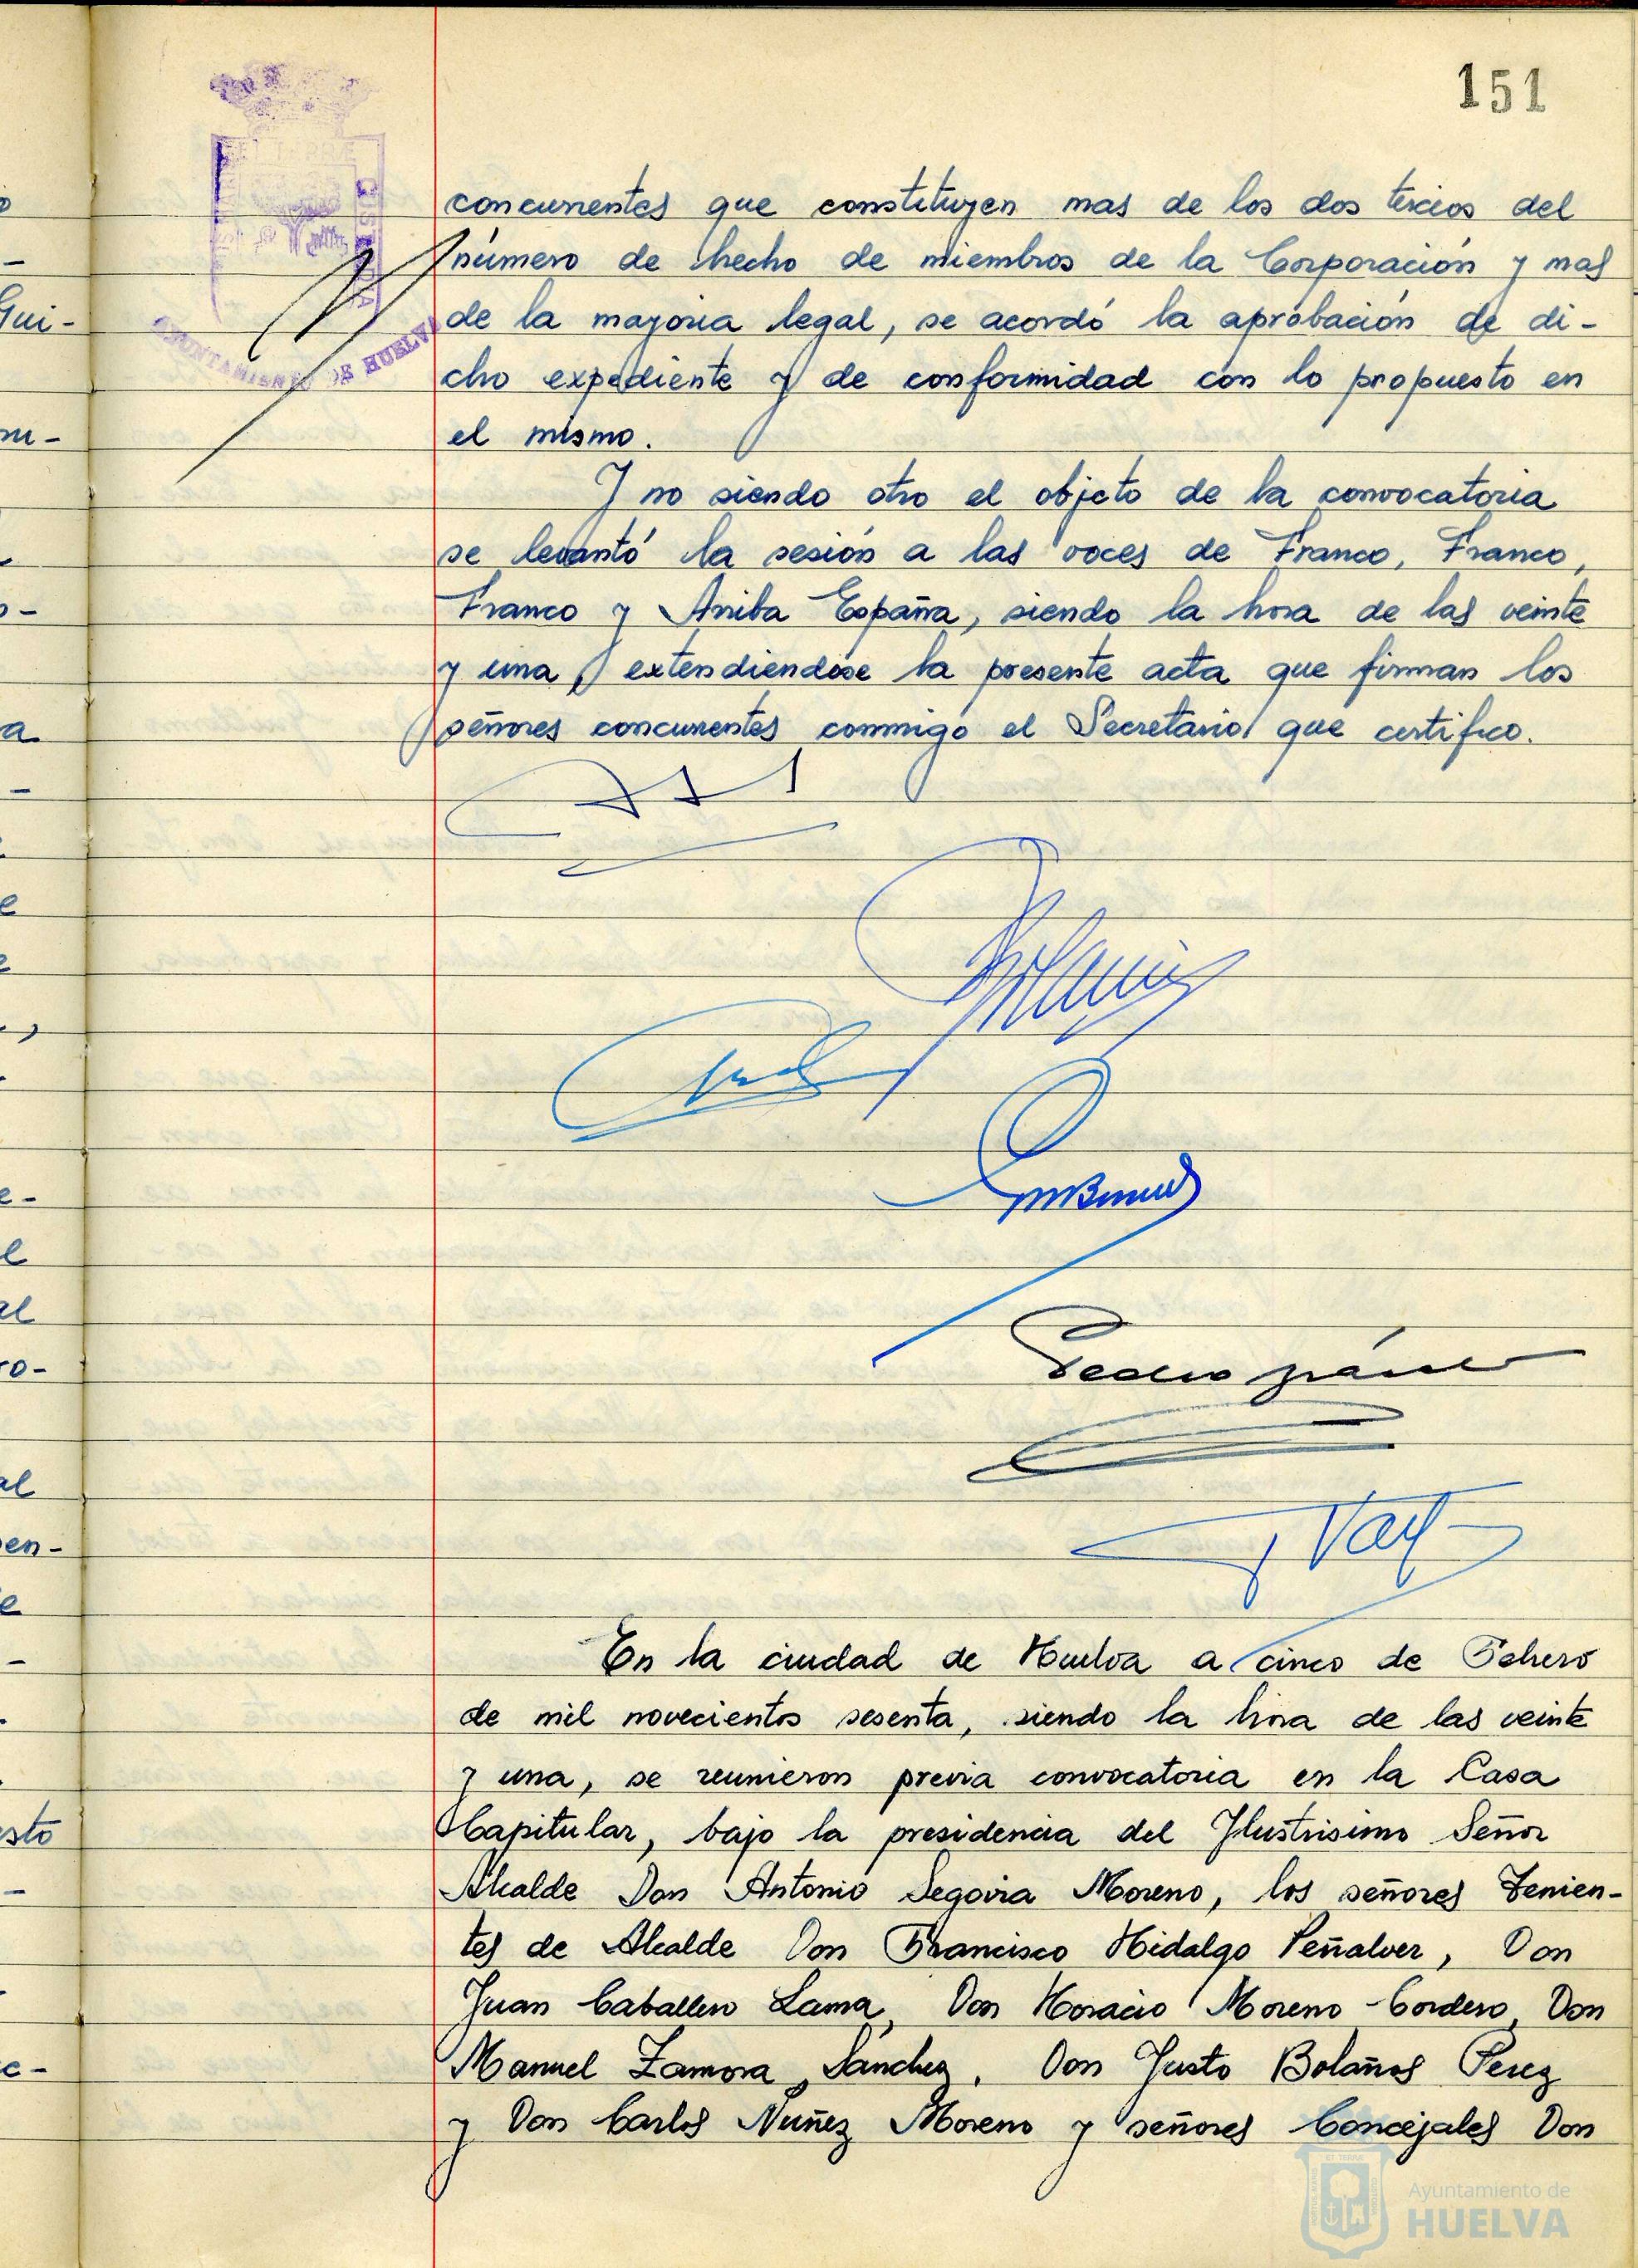 151
concurrentes que constituyen mas de los dos tercios del
número de hecho de miembros de la Corporación y mas
de la mayoria legal, se acordó la aprobación de di-
cho expediente y de conformidad con lo propuesto en
el mismo.
Y no siendo otro el objeto de la convocatoria
se levantó la sesión a las voces de Franco, Franco,
Franco y Arriba España, siendo la hora de las veinte
y una, extendiendose la presente acta que firman los
señores concurrentes conmigo el Secretario que certifico.
En la ciudad de Huelva a cinco de Febrero
de mil novecientos sesenta, siendo la hora de las veinte
y una, se reunieron previa convocatoria en la Casa
Capitular, bajo la presidencia del Ilustrisimo Señor
Alcalde Don Antonio Segovia Moreno, los señores Tenien-
tes de Alcalde Don Francisco Hidalgo Peñalver, Don
Juan Caballero Lama, Don Horacio Moreno Cordero, Don
Manuel Zamora Sánchez, Don Justo Bolaños Perez
y Don Carlos Nuñez Moreno y señores Concejales Don
AYUNTAMIENTO DE HUELVA
Ayuntamiento de
HUELVA